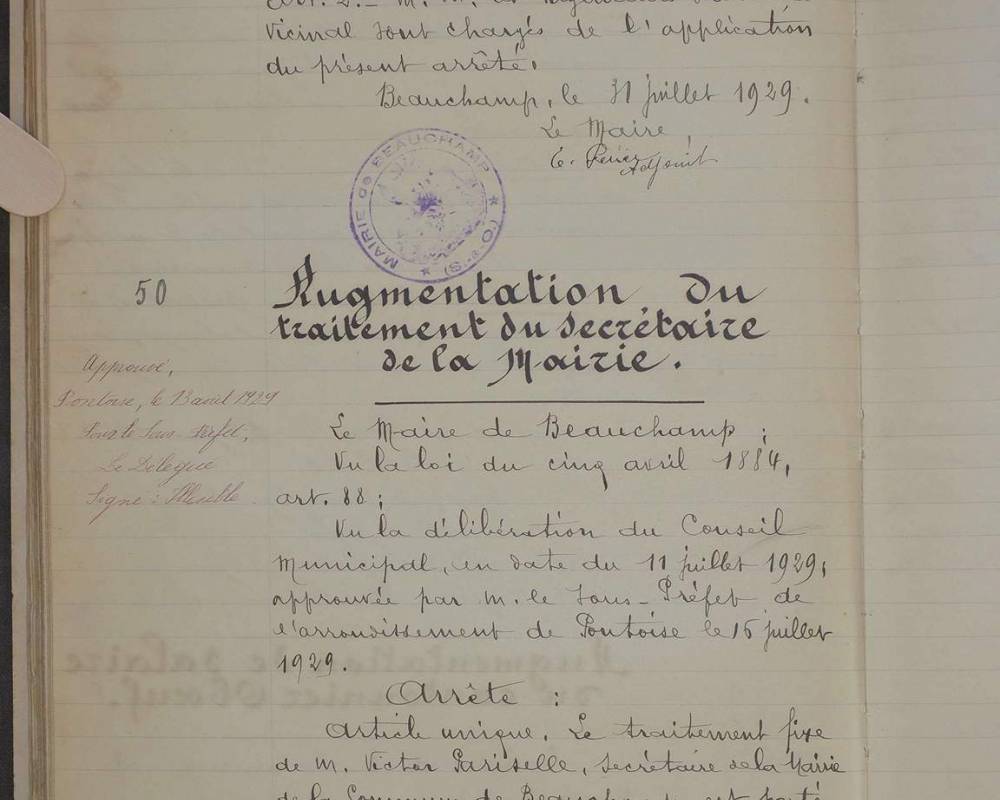 Art. 2._ M. M.
Vicinal sont chargés de l'application
du présent arrêté.
Beauchamp, le 31 juillet 1929.
Le Maire,
E.
Adjoint
MAIRIE de BEAUCHAMP ★ (O.-S) ★
50
Augmentation du
traitement du secrétaire
de la Mairie.
Approuvé,
Pontoise, le 13 août 1929
Pour le Sous-Préfet,
Le Délégué
Signé :
Le Maire de Beauchamp ;
Vu la loi du cinq avril 1884,
art. 88 ;
Vu la délibération du Conseil
Municipal, en date du 11 juillet 1929,
approuvée par M. le Sous-Préfet de
l'arrondissement de Pontoise le 15 juillet
1929.
Arrête :
Article unique. Le traitement fixe
de M. Victor Pariselle, secrétaire de la Mairie
de la Commune de Beauchamp, est porté